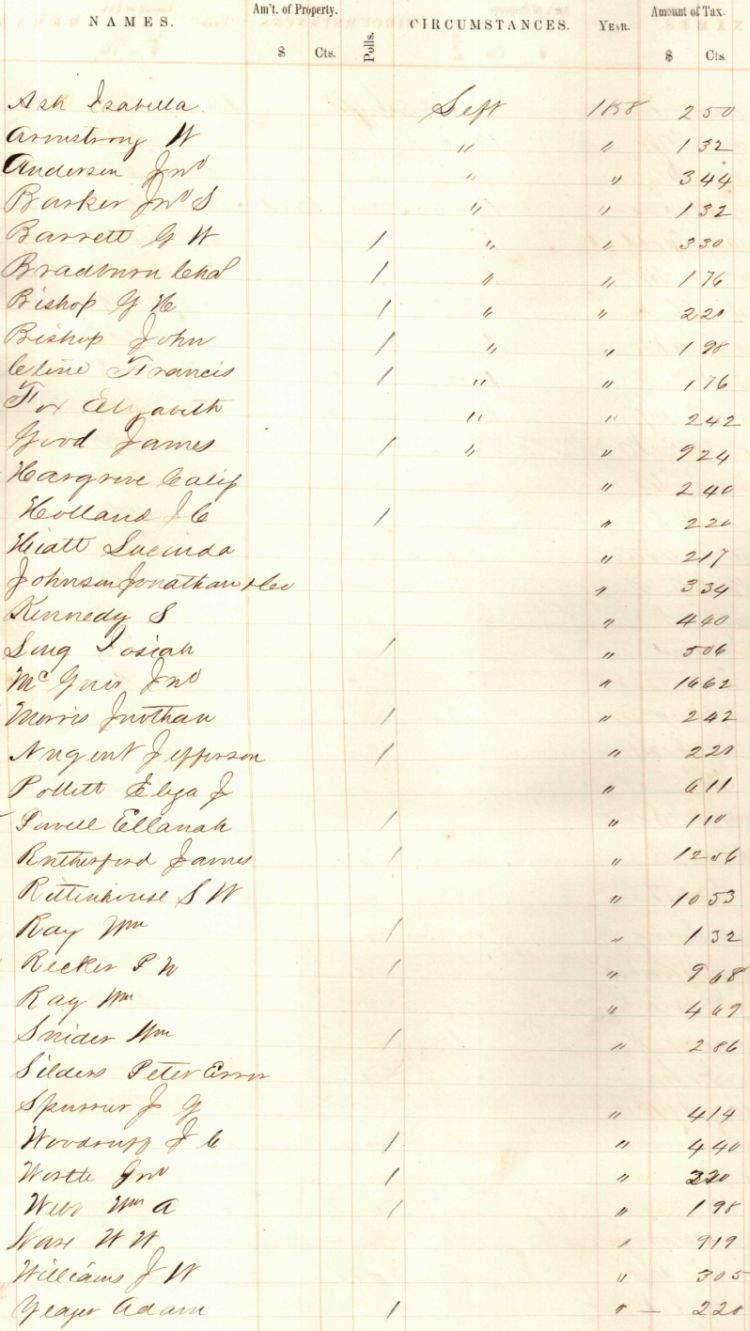 NAMES. Am't. of Property. Polls. CIRCUMSTANCES. YEAR. Amount of Tax.
$ Cts. $ Cts.
Ash Isabella Left 1858 2 50
Armstrong W " " 1 32
Anderson Jno " " 3 44
Barker Jno S " " 1 32
Barrett G W / " " 3 30
Bradburn Chas / " " 1 76
Bishop G H / " " 2 20
Bishop John / " " 1 98
Cline Francis / " " 1 76
Fox Elizabeth " " 2 42
Good James / " " 9 24
Hargrove Calip " 2 40
Holland J C / " 2 20
Hiatt Lucinda " 2 17
Johnson Jonathan & Co " 3 34
Kennedy S " 4 40
Long Josiah / " 5 06
Mc Guir Jno " 16 62
Morris Jnothan / " 2 42
Nugent Jefferson / " 2 20
Pollett Eliza J " 6 11
Powell Ellanah / " 1 10
Rutherford James / " 12 56
Rittenhouse S W " 10 53
Ray Wm / " 1 32
Recker P W / " 9 68
Ray Wm " 4 69
Snider Wm / " 2 86
Silders Peter Error
Spurrier J G " 4 14
Woodruff J C / " 4 40
Worth Jno / " 2 20
Webb Wm A / " 1 98
Ware W W " 9 19
Williams J W " 3 05
Yeager Adam / " — 2 20